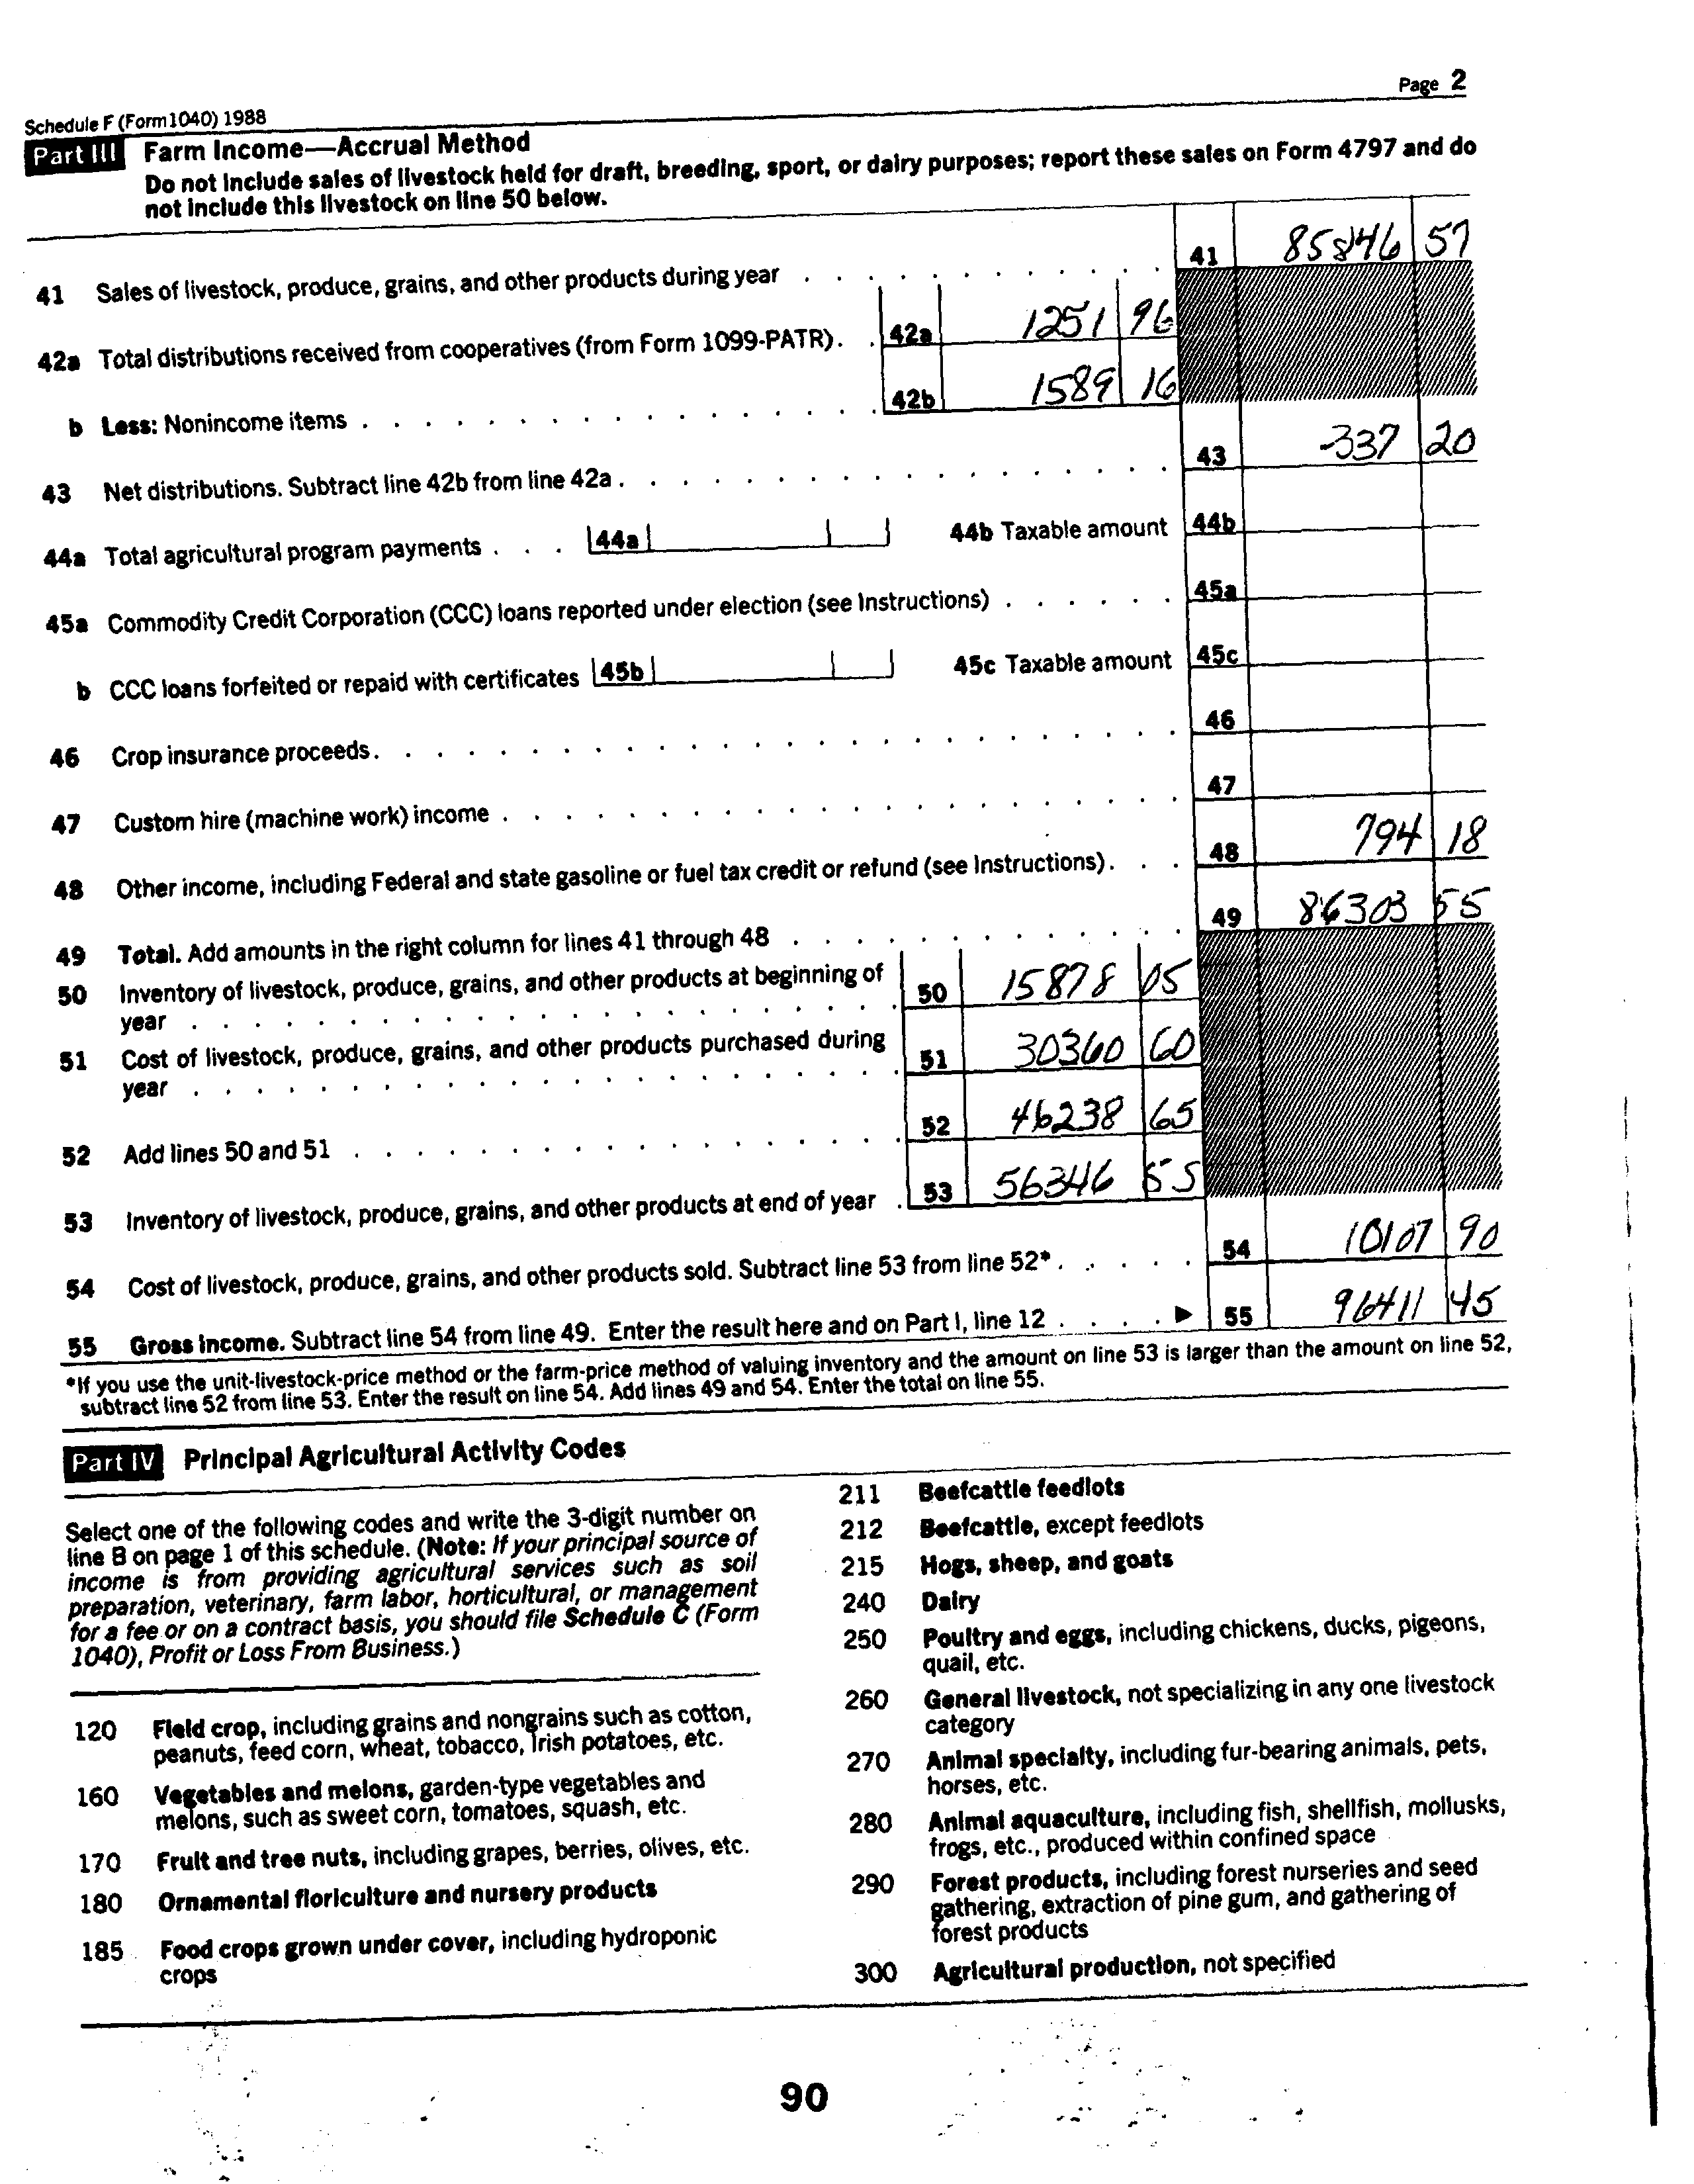 Page 2
Schedule F (Form 1040) 1988
Part III Farm Income—Accrual Method
Do not include sales of livestock held for draft, breeding, sport, or dairy purposes; report these sales on Form 4797 and do
not include this livestock on line 50 below.
41 Sales of livestock, produce, grains, and other products during year . . . . . . . . . . . . 41 85846 57
42a Total distributions received from cooperatives (from Form 1099-PATR). . 42a 1251 96
b Less: Nonincome items . . . . . . . . . . . . . . . . . 42b 1589 16
43 Net distributions. Subtract line 42b from line 42a . . . . . . . . . . . . . . . . . . 43 -337 20
44a Total agricultural program payments . . . 44a 44b Taxable amount 44b
45a Commodity Credit Corporation (CCC) loans reported under election (see Instructions) . . . . . . 45a
b CCC loans forfeited or repaid with certificates 45b 45c Taxable amount 45c
46 Crop insurance proceeds. . . . . . . . . . . . . . . . . . . . . . . . . . 46
47 Custom hire (machine work) income . . . . . . . . . . . . . . . . . . . . . . 47
48 Other income, including Federal and state gasoline or fuel tax credit or refund (see Instructions). . . 48 794 18
49 Total. Add amounts in the right column for lines 41 through 48 . . . . . . . . . . . . . 49 86303 55
50 Inventory of livestock, produce, grains, and other products at beginning of
year . . . . . . . . . . . . . . . . . . . . . . . 50 15878 05
51 Cost of livestock, produce, grains, and other products purchased during
year . . . . . . . . . . . . . . . . . . . . . . . 51 30360 60
52 Add lines 50 and 51 . . . . . . . . . . . . . . . . . . 52 46238 65
53 Inventory of livestock, produce, grains, and other products at end of year . 53 56346 55
54 Cost of livestock, produce, grains, and other products sold. Subtract line 53 from line 52* . . . . . 54 10107 90
55 Gross income. Subtract line 54 from line 49. Enter the result here and on Part I, line 12 . . . . ▶ 55 96411 45
*If you use the unit-livestock-price method or the farm-price method of valuing inventory and the amount on line 53 is larger than the amount on line 52,
subtract line 52 from line 53. Enter the result on line 54. Add lines 49 and 54. Enter the total on line 55.
Part IV Principal Agricultural Activity Codes
Select one of the following codes and write the 3-digit number on
line B on page 1 of this schedule. (Note: If your principal source of
income is from providing agricultural services such as soil
preparation, veterinary, farm labor, horticultural, or management
for a fee or on a contract basis, you should file Schedule C (Form
1040), Profit or Loss From Business.)
120 Field crop, including grains and nongrains such as cotton,
peanuts, feed corn, wheat, tobacco, Irish potatoes, etc.
160 Vegetables and melons, garden-type vegetables and
melons, such as sweet corn, tomatoes, squash, etc.
170 Fruit and tree nuts, including grapes, berries, olives, etc.
180 Ornamental floriculture and nursery products
185 Food crops grown under cover, including hydroponic
crops
211 Beefcattle feedlots
212 Beefcattle, except feedlots
215 Hogs, sheep, and goats
240 Dairy
250 Poultry and eggs, including chickens, ducks, pigeons,
quail, etc.
260 General livestock, not specializing in any one livestock
category
270 Animal specialty, including fur-bearing animals, pets,
horses, etc.
280 Animal aquaculture, including fish, shellfish, mollusks,
frogs, etc., produced within confined space
290 Forest products, including forest nurseries and seed
gathering, extraction of pine gum, and gathering of
forest products
300 Agricultural production, not specified
90